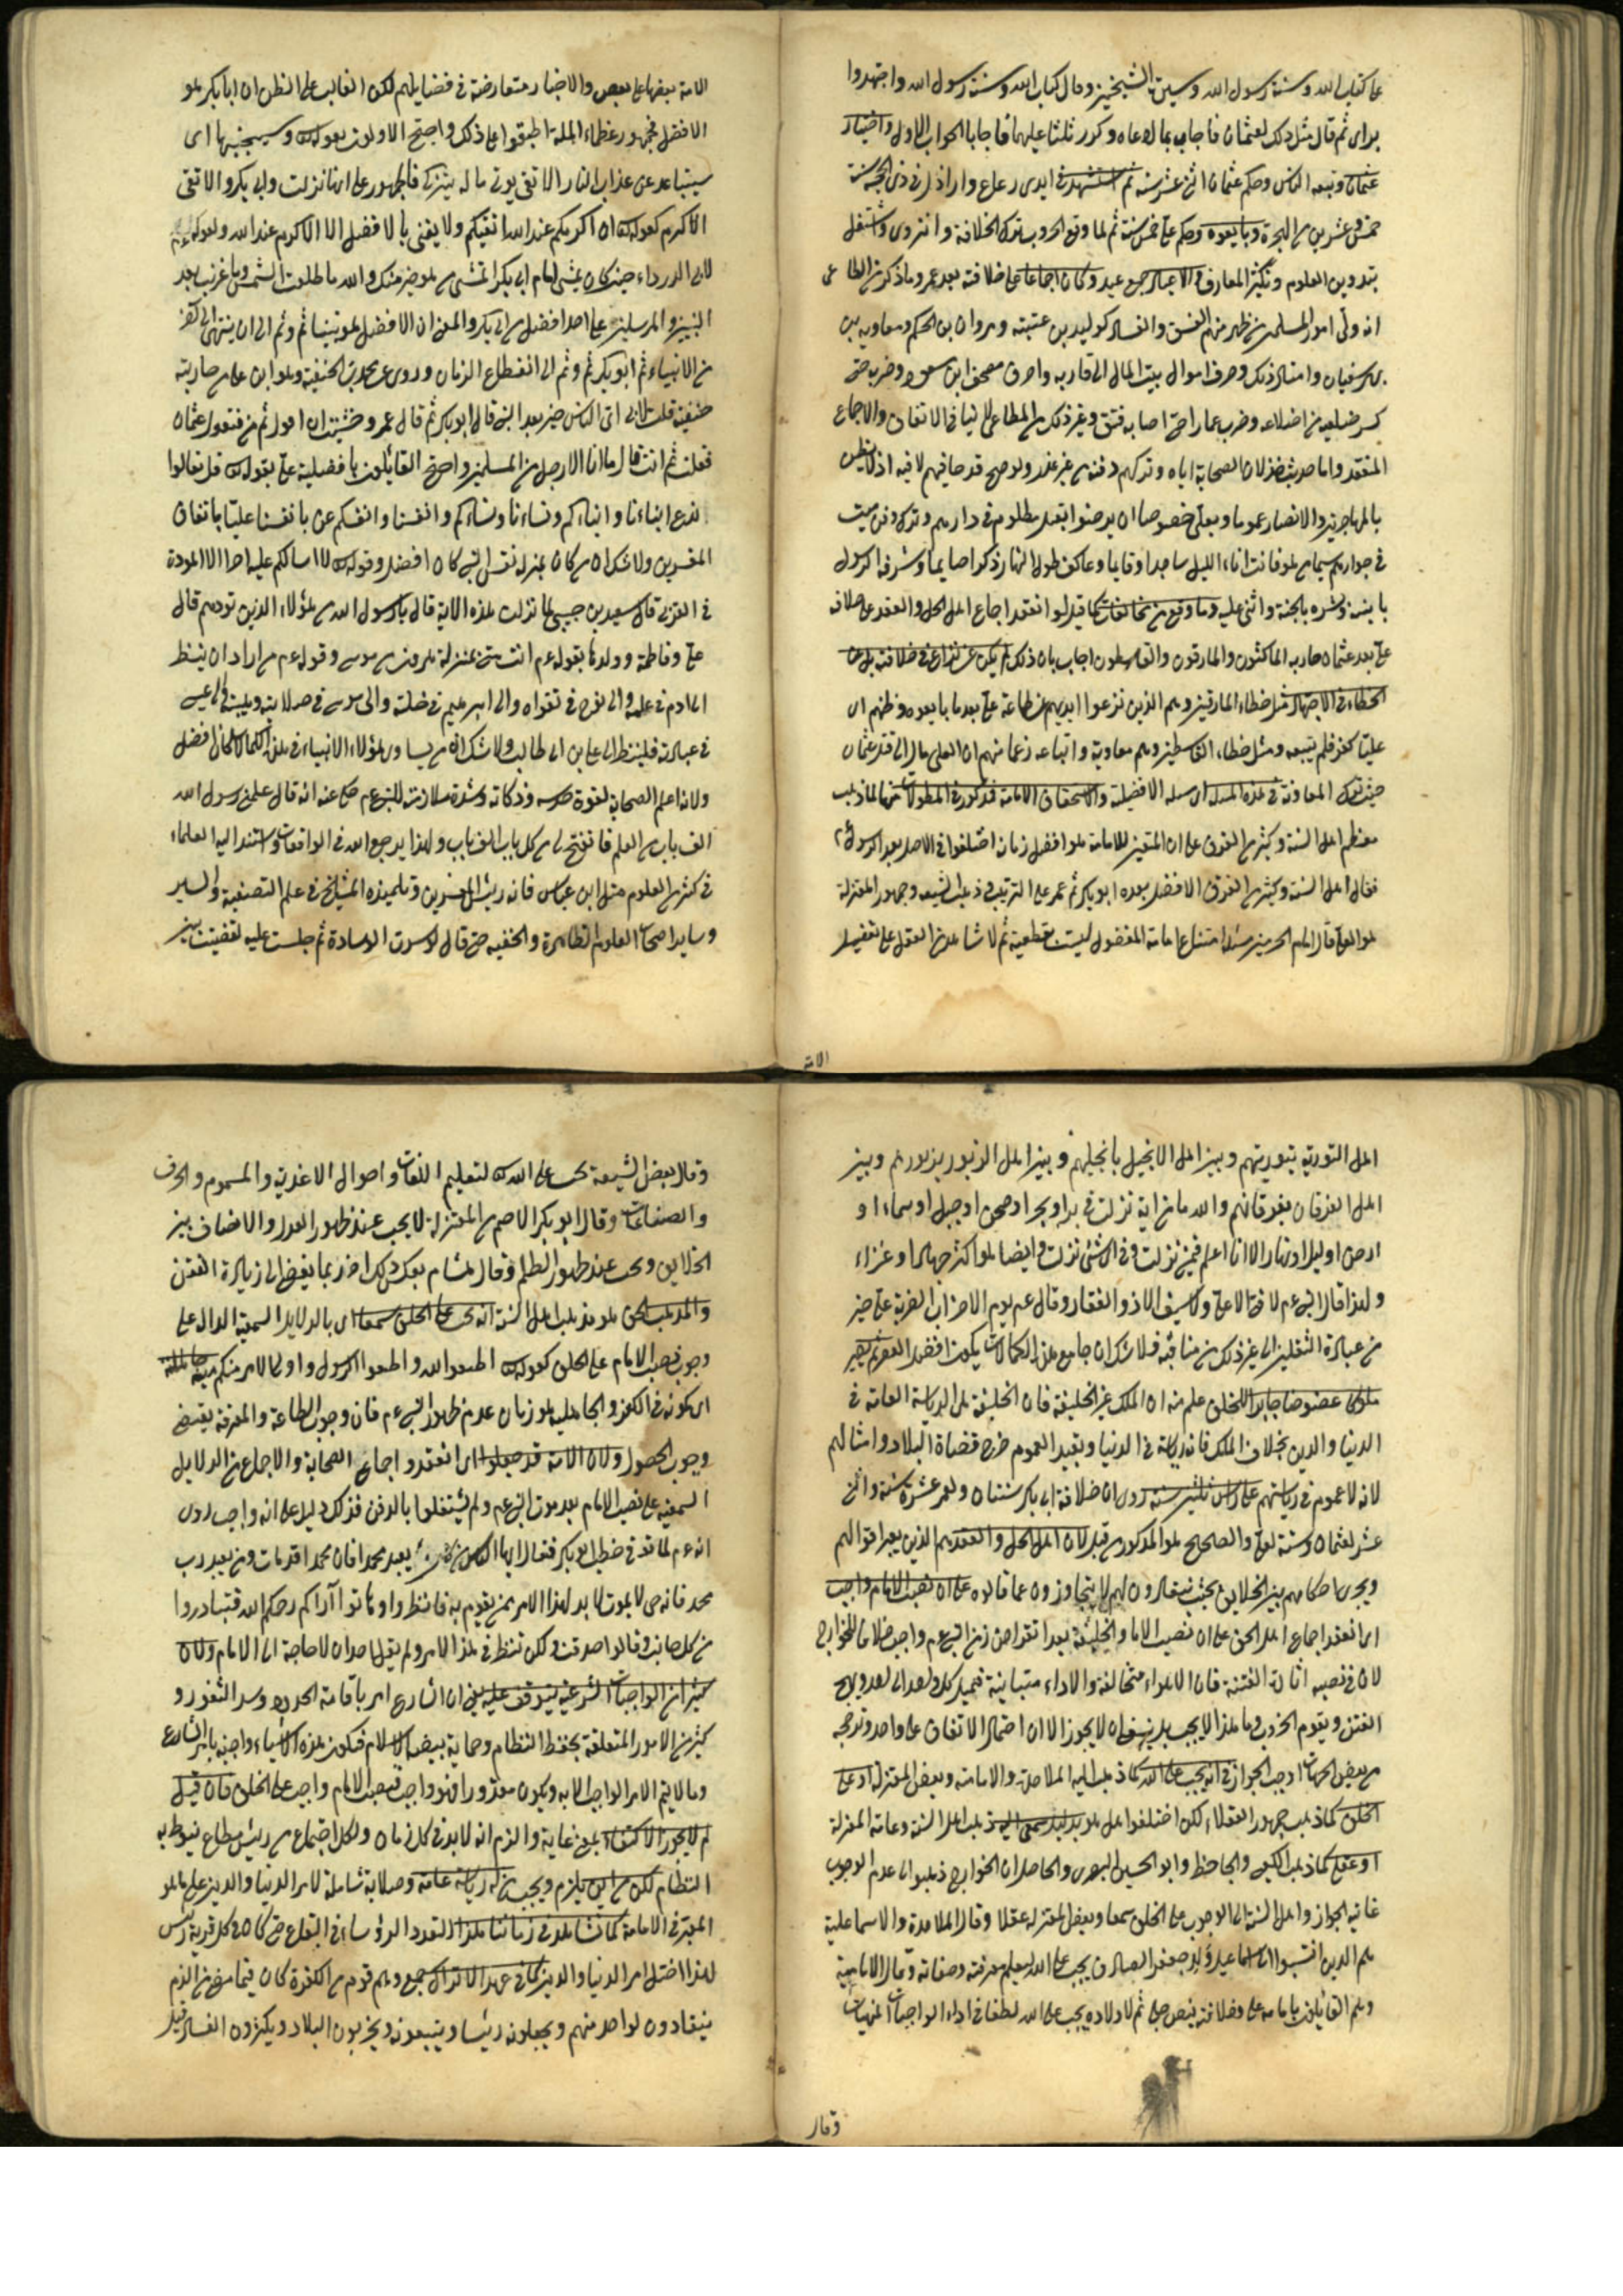 على كتاب الله وسنة رسول الله وسيرة الشيخين وقال كتاب الله وسنة رسول الله واجتهدوا
براى ثم قال مثل ذلك لعثمان فاجاب بما دعاه وكرر ثلثا عليهما فاجابا الجواب الاول واختيار
عثمان وتبعه الناس وحكم عثمان اثنى عشر سنة ثم استشهد فى ايدى رعاع واراذل فى ذى الحجة سنة
خمس وعشرين من الهجرة وبايعوه وحكم على خمس سنة ثم لما وقع الحروب ترك الخلافة وانزوى واشتغل
بتدوين العلوم وتكثير المعارف وكان اجماعا على خلافته بعد عمر وما ذكر من المطاعن
انه ولى امور المسلمين من ظهر منهم الفسق والفساد كوليد بن عتبة ومروان بن الحكم ومعاويه بن
ابى سفيان وامثال ذلك وصرف اموال بيت المال الى اقاربه واحرق مصحف ابن مسعود وضربه حتى
كسر ضلعين من اضلاعه وضرب عمارا حتى اصابه فتق وغير ذلك من المطاعن لا ينافى الاتفاق والاجماع
المنعقد واما حديث خذلان الصحابة اياه وتركهم دفنه من غير عذر ولو صح قدحا فيهم لا فيه اذ لا يظن
بالمهاجرين والانصار عموما وبعلى خصوصا ان يرضوا بقتل مظلوم فى دارهم وترك دفن ميت
فى جوارهم سيما من هو قانت اناء الليل ساجدا وقايما وعاكف طول النهار ذاكرا صايما وشرفه الرسول
بابنيه وبشره بالجنة واثنى عليه وما وقع من مخالفات كما قيل لو انعقد اجماع اهل الحل والعقد على خلافة
على بعد عثمان حاربه الناكثون والمارقون والقاسطون اجاب بان ذلك لم يكن عن نزاع فى خلافته بل عن
الخطاء فى الاجتهاد مثل خطاء المارقين وهم الذين نزعوا ايديهم عن طاعة على بعد ما بايعوه وظنهم ان
عليا كفر فلم يتبعه ومثل خطاء القاسطين وهم معاوية واتباعه زعما منهم ان العلى مال الى قتل عثمان
حيث ترك المعاونة فى هذه المسئلة اى مسئلة الافضلية والاستحقاق الامامة مذكورة فى المطولات
معظم اهل السنة وكثير من الفرق على ان المتعين للامامة هو افضل زمانه اختلفوا فى الافضل بعد الرسول
فقال اهل السنة وكثير من الفرق الافضل بعده ابو بكر ثم عمر على الترتيب وذهب الشيعة وجمهور المعتزلة
هو العلى قال امام الحرمين مسئلة امتناع امامة المفضول ليست بقطعية ثم لا شاهد من العقل على تفضيل
الامة
الائمة بعضها على بعض والاخبار متعارضة فى فضايلهم لكن الغالب على الظن ان ابا بكر هو
الافضل فجمهور عظماء الملة اطبقوا على ذلك واحتج الاولون بقوله وسيجنبها اى
سيتباعد عن عذاب النار الاتقى يؤتى ماله يتزكى فالجمهور على انها نزلت فى ابى بكر والاتقى
الاكرم كقوله ان اكرمكم عند الله اتقيكم ولا يعنى بالافضل الا الاكرم عند الله ولقوله عم
لابى الدرداء حين كان يمشى امام ابى بكر اتمشى من هو خير منك والله ما طلعت الشمس وما غربت بعد
النبيين والمرسلين على احد افضل من ابى بكر والمعنى ان الافضل هو نبينا ثم وثم الى ان ينتهى الى اخر
من الانبياء ثم ابو بكر ثم وثم الى انقطاع الزمان وروى عن محمد بن الحنفية وهو ابن على من جاريته
حنفية قلت لابى اى الناس خير بعد النبى قال ابو بكر ثم قال عمر وخشيت ان اقول ثم من فتقول عثمان
فقلت ثم انت قال ما انا الا رجل من المسلمين واحتج القائلون بافضلية على بقوله قل تعالوا
ندع ابناءنا وابناءكم ونساءنا ونساءكم وانفسنا وانفسكم عن بانفسنا عليا باتفاق
المفسرين ولا شك ان من كان بمنزلة نفس النبى كان افضل وقوله لا اسالكم عليه اجرا الا المودة
فى القربى قال سعيد بن جبير لما نزلت هذه الاية قال يا رسول الله من هؤلاء الذين تودهم قال
على وفاطمة وولدهما بقوله عم انت منى بمنزلة هارون من موسى وقوله عم من اراد ان ينظر
الى ادم فى علمه والى نوح فى تقواه والى ابراهيم فى خلته والى موسى فى صلابته وهيبته والى عيسى
فى عبادته فلينظر الى على بن ابى طالب ولا شك انه من يساوى هؤلاء الانبياء فى هذه الكمالات كان افضل
ولانه اعلم الصحابة لقوة حدسه وذكائه وشدة ملازمته للنبى عم صح عنه انه قال علمنى رسول الله
الف باب من العلم فانفتح لى من كل باب الف باب ولهذا يرجع اليه فى الواقعات واستند اليه العلماء
فى كثير من العلوم مثل ابن عباس فانه رئيس المفسرين وتلميذه المشايخ فى علم التصفية والسير
وساير اصحاب العلوم الظاهرة والخفية حتى قال لو كسرت الوسادة ثم جلست عليه لقضيت بين
اهل التورية بتوريتهم وبين اهل الانجيل بانجيلهم وبين اهل الزبور بزبورهم وبين
اهل الفرقان بفرقانهم والله ما من اية نزلت فى بر او بحر او صحن او جبل او سماء او
ارض او ليل او نهار الا انا اعلم فيمن نزلت وفى اى شئ نزلت وايضا هو اكثر جهادا وغزاء
ولهذا قال النبى عم لا فتى الا على ولا سيف الا ذو الفقار وقال عم يوم الاحزاب لضربة على خير
من عبادة الثقلين الى غير ذلك من مناقبه فلا شك ان جامع هذه الكمالات يكون افضل
ملكا عضوضا جابرا للخلق علم منه ان الملك غير الخليفة فان الخليفة له الرياسة العامة فى
الدنيا والدين بخلاف الملك فانه رياسة فى الدنيا وبقيد العموم خرج قضاة البلاد وامثالهم
لانه لا عموم فى رياستهم على راس ثلثين سنة روى ان خلافة ابى بكر سنتان ولعمر عشرة سنة واثنى
عشر لعثمان وستة لعلى والصحيح هو المذكور من قبل لان اهل الحل والعقد هم الذين يعتبر اقوالهم
ويجرى احكامهم بين الخلايق بحيث ينقادون لهم لا يتجاوزون عما قالوه على ان نصب الامام واجب
اى انعقد اجماع اهل الحق على ان نصب الامام والخليفة بعد انقراض زمن النبى عم واجب خلافا للخوارج
لان فى نصبه اثارة الفتنة فان الاهواء متخالفة والاراء متباينة فيميل كل واحد الى احد ويهيج
الفتن ويقوم الحروب وما هذا لا يجب بل ينبغى ان لا يجوز الا ان احتمال الاتفاق على واحد وترجحه
من بعض الجهات اوجب الجواز فى انه يجب على الله كما ذهب اليه الملاحدة والامامة وبعض المعتزلة او على
الخلق كما ذهب جمهور العقلاء لكن اختلفوا هل هو بدليل سمعى اليه ذهب اهل السنة وعامة المعتزلة
او عقلى كما ذهب الكعبى والجاحظ وابو الحسين البصرى والحاصل ان الخوارج ذهبوا الى عدم الوجوب
غايته الجواز واهل السنة الى الوجوب على الخلق سمعا وبعض المعتزلة عقلا وقال الملاحدة والاسماعلية
هم الذين انتسبوا الى اسماعيل ولد جعفر الصادق يجب على الله ليعلم معرفته وصفاته وقال الامامية
وهم القائلون بامامة على وخلافته بنص جلى ثم لاولاده يجب على الله لطفا فى اداء الواجبات
وقال
وقال بعض الشيعة يجب على الله لتعليم اللغات واحوال الاغذية والسموم والحرف
والصناعات وقال ابو بكر الاصم من المعتزلة لا يجب عند ظهور العدل والانصاف بين
الخلايق ويجب عند ظهور الظلم وقال هشام بعكس ذلك اذ ربما يفضى الى زيادة الفتن
والمذهب الحق هو مذهب اهل السنة انه يجب على الخلق سمعا اى بالدلايل السمعية الدال على
وجوب نصب الامام على الخلق كقوله اطيعوا الله واطيعوا الرسول واولى الامر منكم ميتة جاهلية
اى كونه فى الكفر والجاهلية هو زمان عدم ظهور النبى عم فان وجوب الطاعة والمعرفة يقتضى
وجوب الحصول ولان الامة قد جعلوا اى انعقدوا اجماع الصحابة والاجماع من الدلايل
السمعية على نصب الامام بعد موت النبى عم ولم يشتغلوا بالدفن فذلك دليل على انه واجب روى
انه عم لما توفى خطب ابو بكر فقال ايها الناس من كان يعبد محمدا فان محمدا قد مات ومن يعبد رب
محمد فانه حى لا يموت لا بد لهذا الامر ممن يقوم به فانظروا وهاتوا آراكم رحمكم الله فتبادروا
من كل جانب وقالوا صدقت ولكن ننظر فى هذا الامر ولم يقل احد ان لا حاجة الى الامام ولان
كثيرا من الواجبات الشرعية يتوقف عليه يعنى ان الشارع امر باقامة الحدود وسد الثغور و
كثير من الامور المتعلقة بحفظ النظام وحماية بيضة الاسلام فيكون هذه الاشياء واجبة بامر الشارع
وما لا يتم الامر الواجب الا به ويكون مقدورا فهو واجب فنصب الامام واجب على الخلق فان قيل
لم لا يجوز الاكتفاء هو غاية والزم انه لا بد فى كل زمان ولكل اجتماع من رئيس مطاع ينوط به
النظام لكن من اين يلزم ويجب من له رياسة عامة وصلابة شاملة لامر الدنيا والدين على ما هو
المعتبر فى الامامة كما نشاهد فى زماننا هذا التعدد الرؤساء فى البقاع حتى كان فى كل قرية رئيس
لهذا اختل امر الدنيا والدين كما فى عهد الاتراك جمع وهم قوم من الكفرة كان فيما مضى من الزم
ينقادون لواحد منهم ويجعلونه رئيسا ويتبعونه ويخربون البلاد ويكثرون الفساد قيل